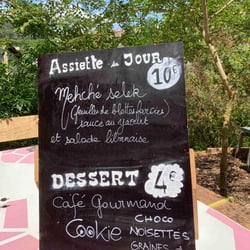 Assiette du Jour
10€
Mehché selek
(feuilles de blettes farcies)
sauce au yaourt
et salade libanaise
DESSERT 4€
Café Gourmand
Cookie CHOCO
NOISETTES
GRAINES